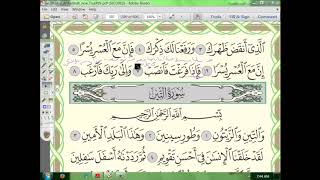 الَّذِي أَنقَضَ ظَهْرَكَ ٣ وَرَفَعْنَا لَكَ ذِكْرَكَ ٤ فَإِنَّ مَعَ الْعُسْرِ يُسْرًا ٥
إِنَّ مَعَ الْعُسْرِ يُسْرًا ٦ فَإِذَا فَرَغْتَ فَانصَبْ ٧ وَإِلَىٰ رَبِّكَ فَارْغَب ٨
سُورَةُ التِّينِ
بِسْمِ اللَّهِ الرَّحْمَٰنِ الرَّحِيمِ
وَالتِّينِ وَالزَّيْتُونِ ١ وَطُورِ سِينِينَ ٢ وَهَٰذَا الْبَلَدِ الْأَمِينِ ٣
لَقَدْ خَلَقْنَا الْإِنسَانَ فِي أَحْسَنِ تَقْوِيمٍ ٤ ثُمَّ رَدَدْنَاهُ أَسْفَلَ سَافِلِينَ